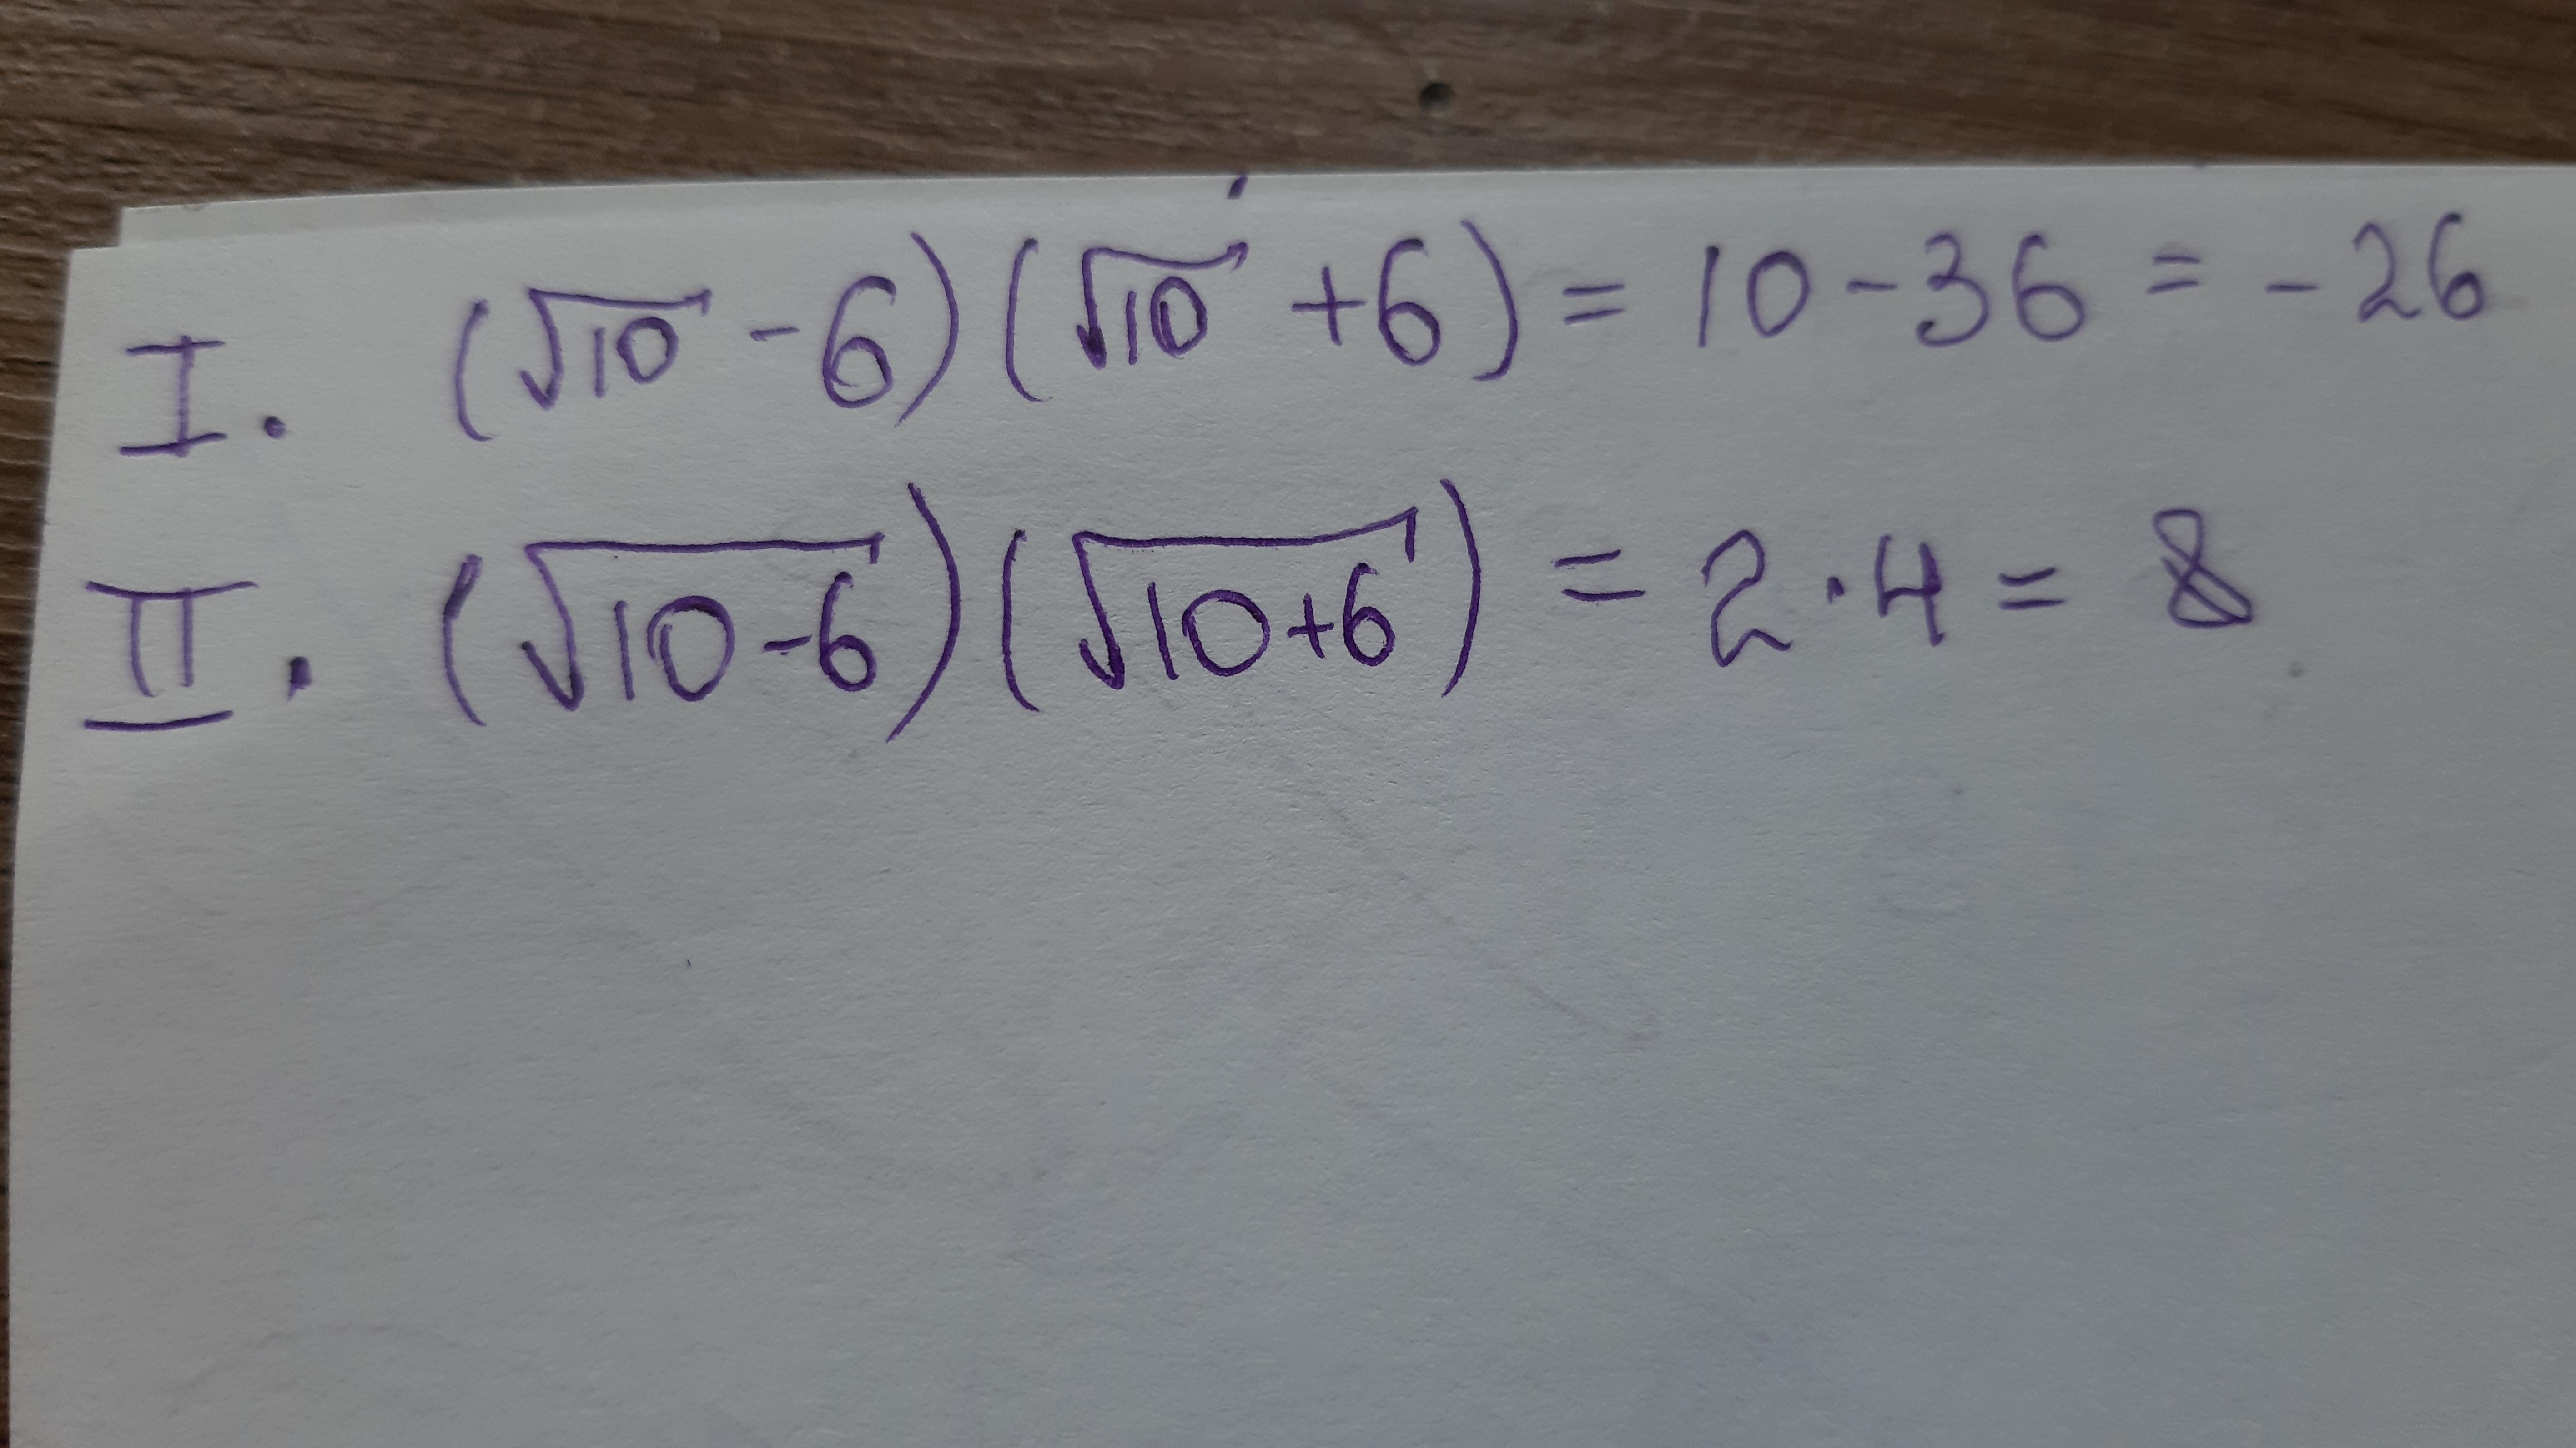 I. (√10 - 6)(√10 + 6) = 10 - 36 = - 26
II. (√(10-6))(√(10+6)) = 2 · 4 = 8